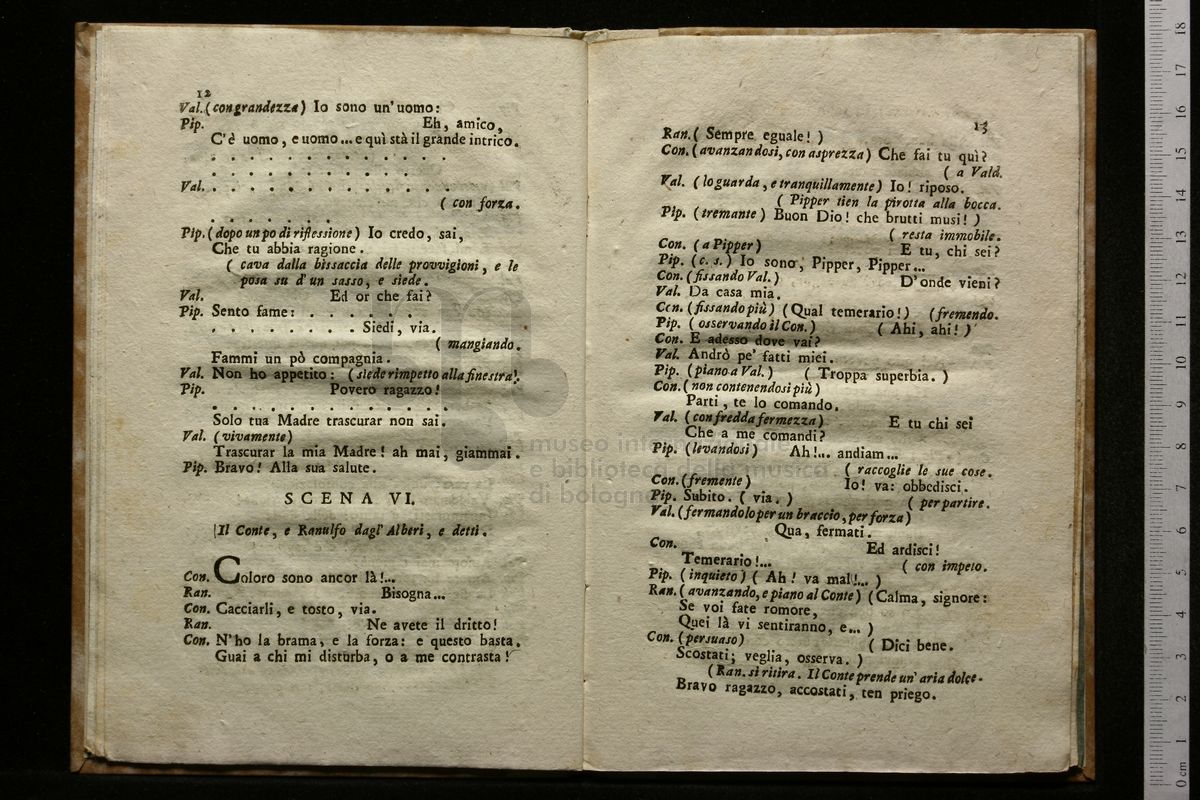 12
Val. (con grandezza) Io sono un' uomo:
Pip. Eh, amico,
C'è uomo, e uomo... e quì stà il grande intrico.
. . . . . . . . . . . . .
. . . . . . . . . . .
Val. . . . . . . . . . . . . .
( con forza.
. . . . . . .
Pip. (dopo un po di riflessione) Io credo, sai,
Che tu abbia ragione.
( cava dalla bissaccia delle provvigioni, e le
posa su d'un sasso, e siede.
Val. Ed or che fai?
Pip. Sento fame: . . . . . .
. . . . . . . . Siedi, via.
( mangiando.
Fammi un pò compagnia.
Val. Non ho appetito: (siede rimpetto alla finestra).
Pip. Povero ragazzo!
. . . . . . . . . . . . .
Solo tua Madre trascurar non sai.
Val. (vivamente)
Trascurar la mia Madre! ah mai, giammai.
Pip. Bravo! Alla sua salute.
SCENA VI.
Il Conte, e Ranulfo dagl' Alberi, e detti.
Con. Coloro sono ancor là!...
Ran. Bisogna...
Con. Cacciarli, e tosto, via.
Ran. Ne avete il dritto!
Con. N'ho la brama, e la forza: e questo basta.
Guai a chi mi disturba, o a me contrasta!
13
Ran. ( Sempre eguale! )
Con. (avanzandosi, con asprezza) Che fai tu quì?
( a Vald.
Val. (lo guarda, e tranquillamente) Io! riposo.
( Pipper tien la pirotta alla bocca.
Pip. (tremante) Buon Dio! che brutti musi! )
( resta immobile.
Con. (a Pipper) E tu, chi sei?
Pip. (c. s.) Io sono, Pipper, Pipper...
Con. (fissando Val.) D'onde vieni?
Val. Da casa mia.
Con. (fissando più) (Qual temerario!) (fremendo.
Pip. (osservando il Con.) ( Ahi, ahi! )
Con. E adesso dove vai?
Val. Andrò pe' fatti miei.
Pip. (piano a Val.) ( Troppa superbia. )
Con. (non contenendosi più)
Parti, te lo comando.
Val. (con fredda fermezza) E tu chi sei
Che a me comandi?
Pip. (levandosi) Ah!... andiam...
( raccoglie le sue cose.
Con. (fremente) Io! va: obbedisci.
Pip. Subito. ( via. ) ( per partire.
Val. (fermandolo per un braccio, per forza)
Qua, fermati.
Con. Ed ardisci!
Temerario!... ( con impeto.
Pip. (inquieto) ( Ah! va mal!... )
Ran. (avanzando, e piano al Conte) (Calma, signore:
Se voi fate romore,
Quei là vi sentiranno, e... )
Con. (persuaso) ( Dici bene.
Scostati; veglia, osserva. )
(Ran. si ritira. Il Conte prende un' aria dolce.
Bravo ragazzo, accostati, ten priego.
museo internazionale
e biblioteca della musica
di bologna
0 cm 1 2 3 4 5 6 7 8 9 10 11 12 13 14 15 16 17 18